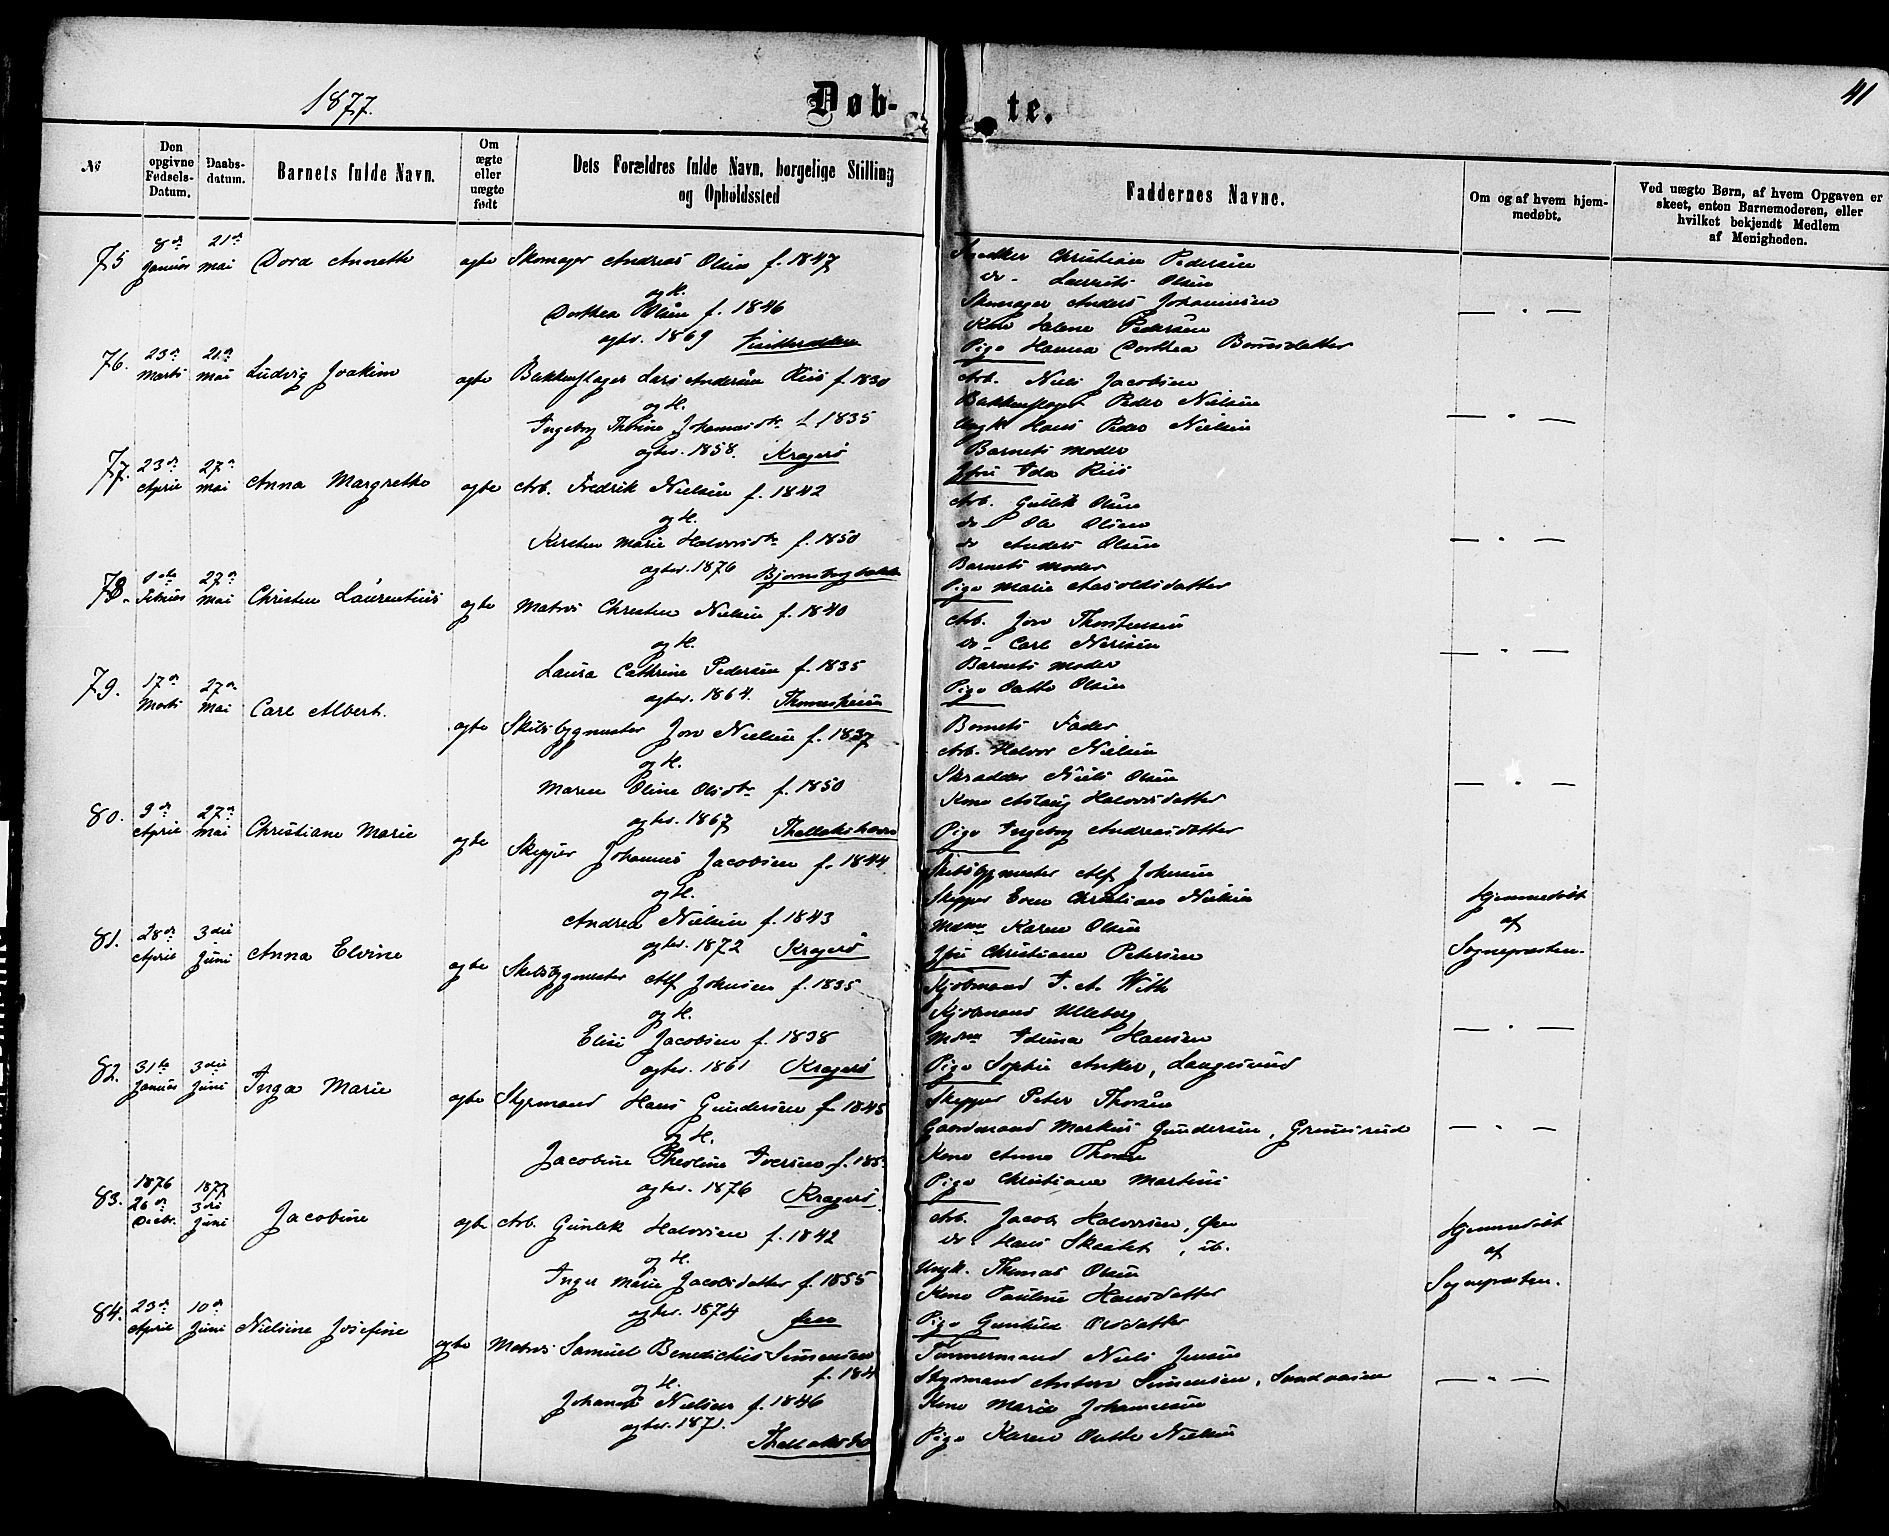 1877.
Døb-
te.
41
№
Den opgivne Fødsels-Datum.
Daabs-datum.
Barnets fulde Navn.
Om ægte eller uægte født
Dets Forældres fulde Navn, borgelige Stilling og Opholdssted
Faddernes Navne.
Om og af hvem hjem-medøbt.
Ved uægte Børn, af hvem Opgaven er skeet, enten Barnemoderen, eller hvilket bekjendt Medlem af Menigheden.
75 8de Januar 21de Mai Dora Annette ægte Skomager Andreas Olsen f. 1847
og H.
Dorthea Olsen f. 1846
ægtev. 1869
Snedker Christian Pedersen
do - Laurits Olsen
Skomager Anders Johannesen
Kone Helene Pedersen
Pige Hanna Dorthea
— " —
76. 23de Marts 21de Mai Ludvig Joakim ægte Bakkenflager Lars Andersen Riis f. 1830
og H.
Ingeborg Thorine Johannesdtr f. 1835
ægtev. 1858. Kragerö
Arb. Niels Jacobsen
Peder Nielsen
Ungk. Hans Peder Nielsen
Barnets Moder
Jfru Ida Riis
— " —
77. 23de April 27de Mai Anna Margrethe ægte Arb. Fredrik Nielsen f. 1842
og H.
Kirsten Marie Halvorsdtr f. 1850
ægtev. 1876 Bjørnsbergbakken
Arb. Gullik Olsen
do - Ole Olsen
do Anders Olsen
Barnets Moder
Pige Marie Aasoldsdatter
— " —
78. Februar 27de Mai Christen Laurentius ægte Matros Christen Nielsen f. 1840
og H.
Laura Cathrine Pedersen f. 1835
ægtev. 1864.
Arb. Jon Thorstensen
do - Carl Nielsen
Barnets Moder
Pige Olsen
— " —
79. 17de Marts 27de Mai Carl Albert. ægte Skibsbygmester Jon Nielsen f. 1837
og H.
Maren Oline Olsdtr f. 1850
ægtev. 1867
Barnets Fader
Arb. Halvor Nielsen
Skrædder Niels Olsen
Kone Aslaug Halvorsdatter
Pige Ingeborg Andreasdatter
— " —
80. 9de April 27de Mai Christiane Marie ægte Skipper Johannes Jacobsen f. 1844
og H.
Andrea Nielsen f. 1843
ægtev. 1872 Kragerö
Skibsbygmester Alf Johnsen
Skipper Even Christian Nielsen
Mdme Karen Olsen
Jfru Christiane Petersen
Kjøbmand With
Hjemmedöbt
af
Sognepræsten.
81. 28de April 3die Juni Anna Elvine ægte Skibsbygmester Alf Johnsen f. 1835
og H.
Elise Jacobsen f. 1838
ægtev. 1861 Kragerö
Kjøbmand Ulleberg
Mdme Hansen
Pige Sophie Anker, Langesund
— " —
82. 31te Januar 3die Juni Inga Marie ægte Styrmand Hans Gundersen f. 1845
og H.
Jacobine Theoline Iversen
ægtev. 1876 Kragerö
Skipper Peter Thorsen
Gaardmand Markus Gundersen,
Kone Anne
Pige Christiane Martins
— " —
83. 1876 26de Decbr. 1877 3die Juni Jacobine ægte Arb. Gunlek Halvorsen f. 1842
og H.
Inger Marie Jacobsdatter f. 1855
ægtev. 1874
Arb. Jacob Halvorsen,
do - Hans Skaalet, ib.
Ungk. Thomas Olsen
Kone Pauline Hansdatter
Pige Gunhild Olsdatter
Hjemmedöbt
af
Sognepræsten.
84. 23de April 10de Juni Nielsine Josefine ægte Matros Samuel Benedictus Simonsen
f. 184
og H.
Johanne Nielsen f. 1846
ægtev. 1871.
Tömmermand Niels Jensen
Styrmand Anton Simonsen,
Kone Marie Johannesen
Pige Karen Nielsen
— " —